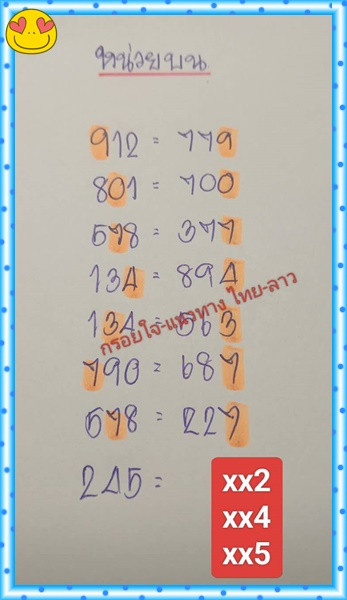 หน่วยบน
912 = 779
801 = 700
578 = 377
134 = 894
134 = 563
กรอยใจ-แนวทาง ไทย-ลาว
790 = 687
678 = 227
245 =
xx2
xx4
xx5